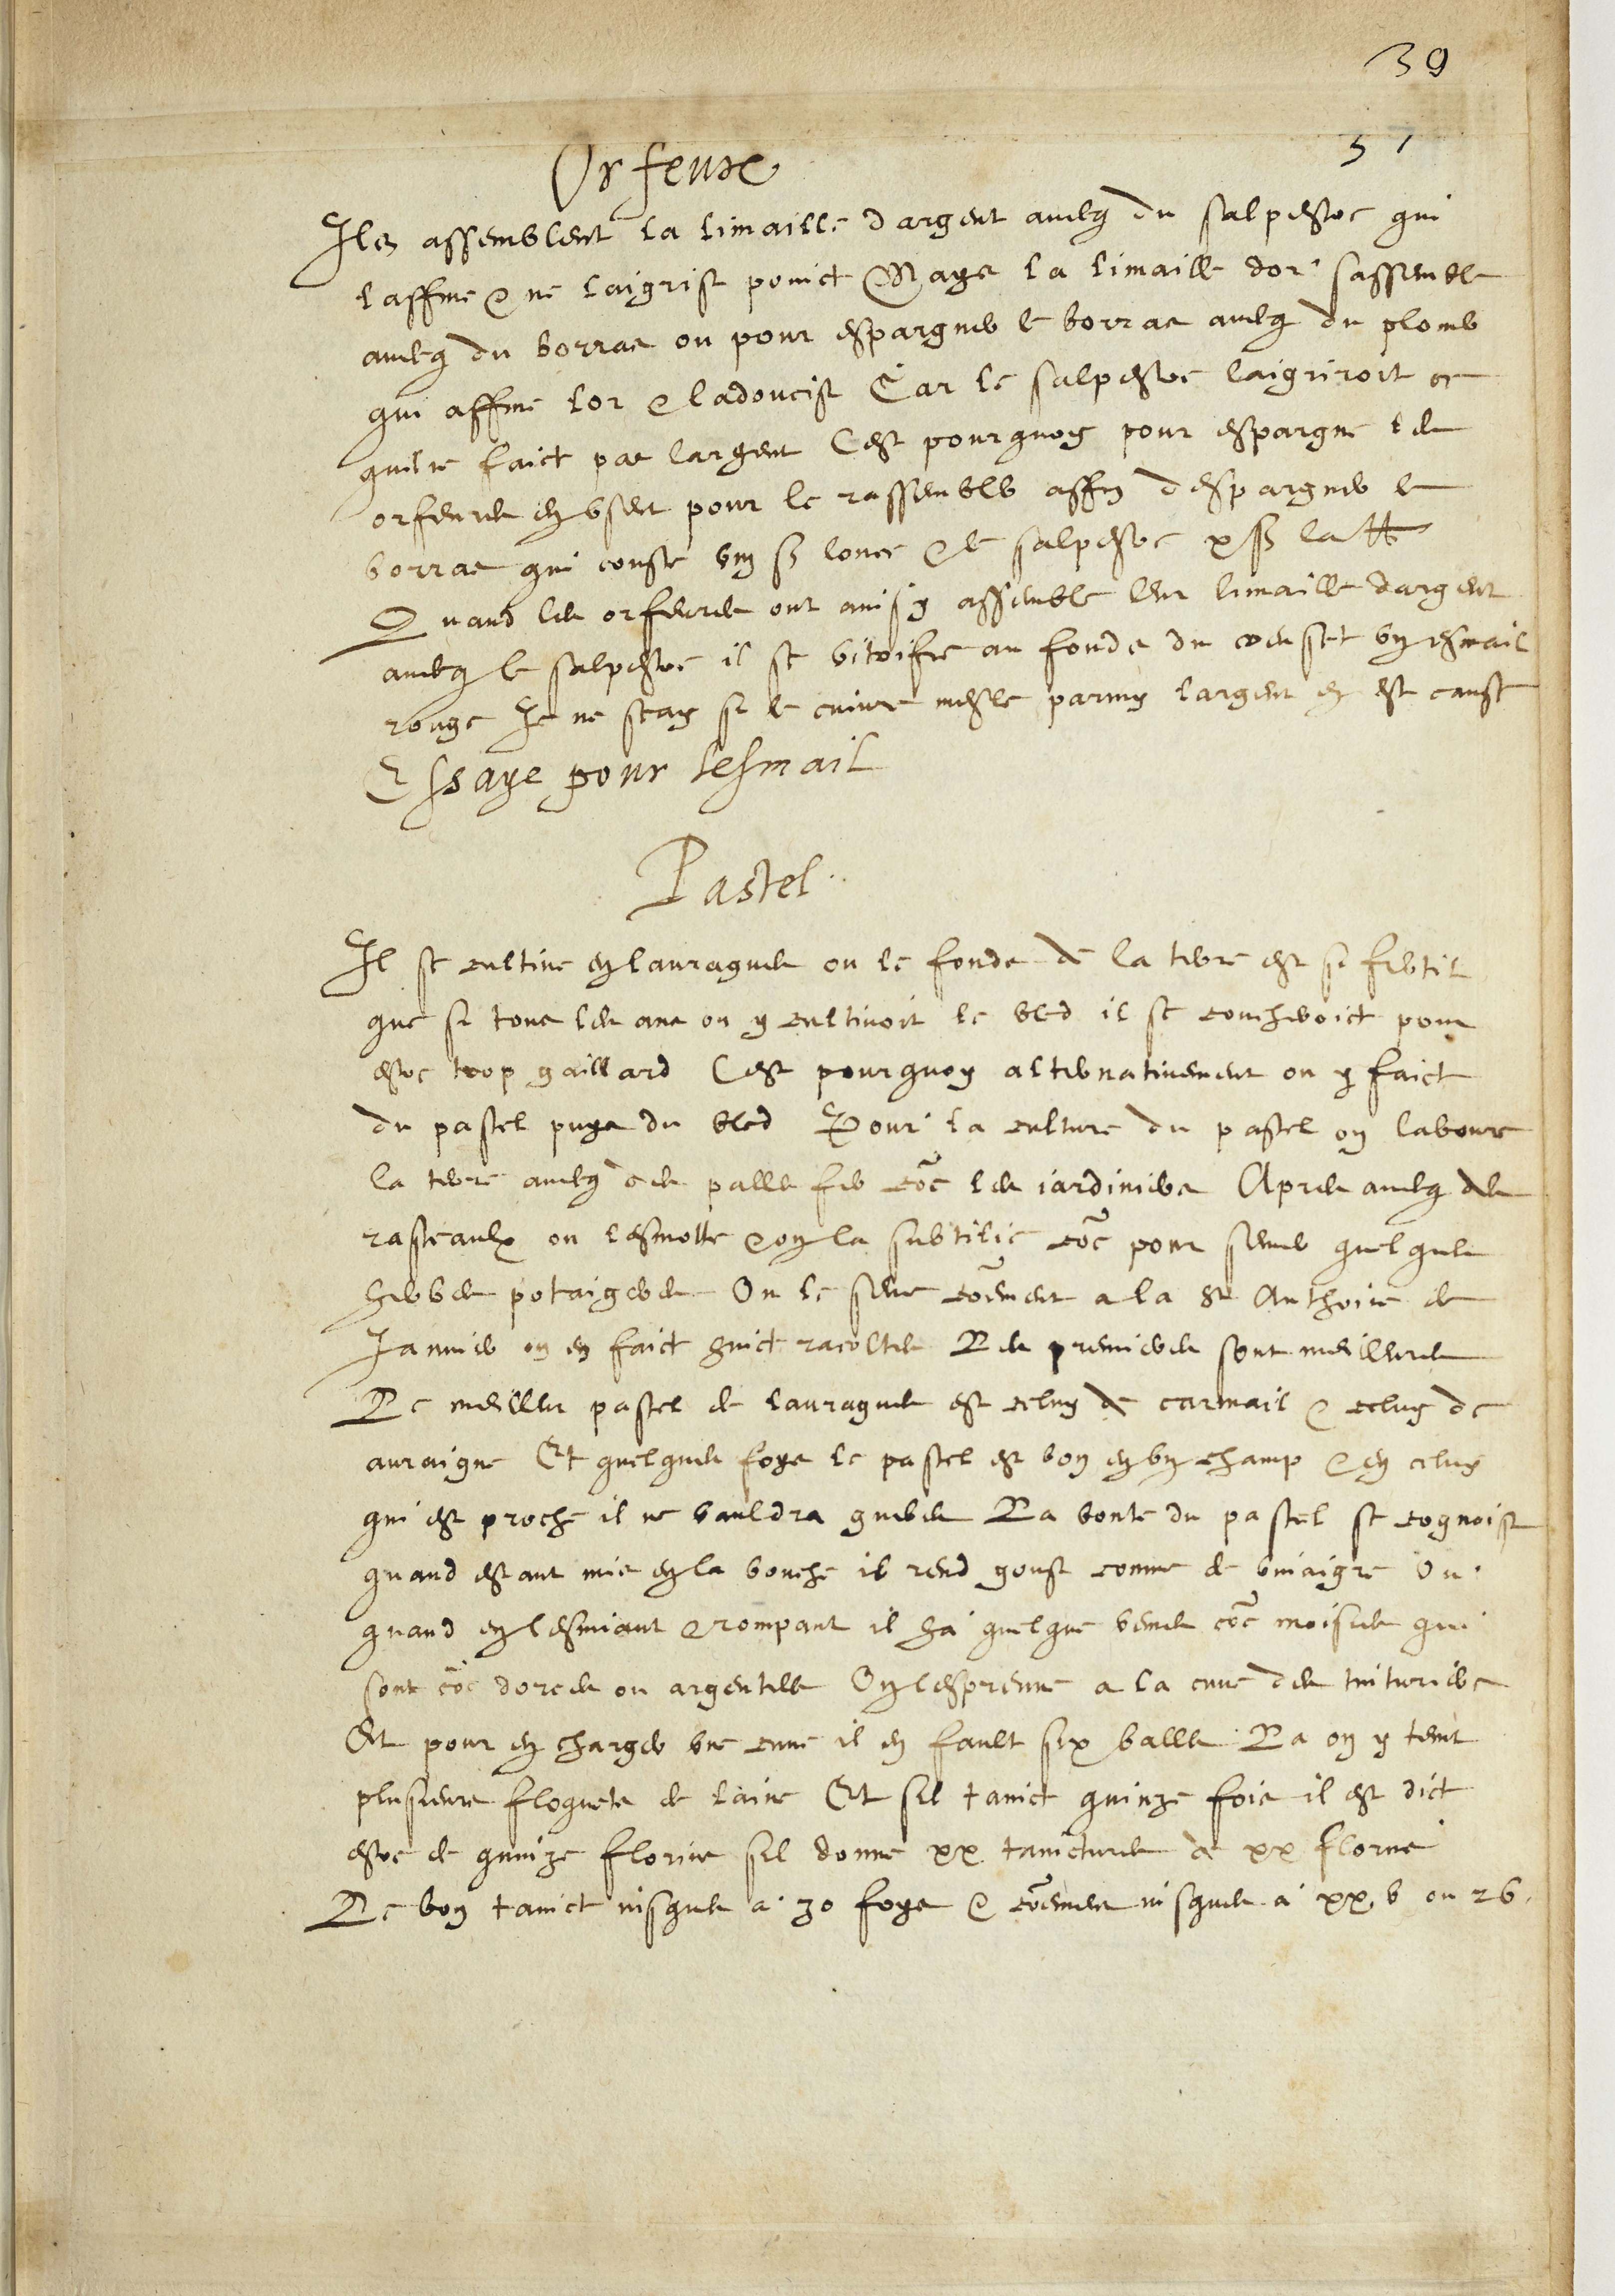 39
51
Orfeuvre
Ils assemblent la limaille dargent aulcq du salpestre qui
laffine & ne laigrist poinct Mays la limaille dor sassemble
aulcq du borras ou pour espargner le borras aulcq du plomb
qui affine lor & ladoucist Car le salpestre laigriroit ce
quil ne faict pas largent Cest pourquoy pour espargne les
orfeuvres en usent pour le rassembler affin despargner le
borras qui couste un ß lonce & le salpestre x ß la ℔
Quand les orfeuvres ont ainsy assemble leur limaille dargent
aulcq le salpestre il se vitrifie au fonds du creuset un esmail
rouge Je ne scay si le cuivre mesle parmy largent en est cause
Essaye pour lesmail
Pastel
Il se cultive en lauragues ou le fonds de la terre est si fertil
que si tous les ans on y cultivoit le bled il se coucheroict pour
estre trop gaillard Cest pourquoy alternativement on y faict
du pastel puys du bled Pour la culture du pastel on laboure
la terre aulcq des palles fer cõe les iardiniers Apres aulcq des
rasteaulx on lesmotte & on la subtilie cõe pour semer quelques
herbes potaigeres On le seme cõemeut a la St Anthoine de
Janvier on en faict huict racoltes Les premieres sont meilleures
Le meilleur pastel de lauragues est celuy de carmail & celuy de
auraigne Et quelques foys le pastel est bon en un champ & en celuy
qui est proche il ne vauldra gueres La bonte du pastel se cognoist
quand estant mis en la bouche il rend goust comme de vinaigre Ou
quand en lesmiant & rompant il ha quelque venes cõe moisies qui
sont cõe dorees ou argentees On lespreuve a la cuve des tinturiers
Et pour en charger une cuve il en fault six balles La on y teint
plusieurs floquets de laine Et sil tainct quinze fois il est dict
estre de quinze florins sil donne xx tainctures de xx florins
Le bon tainct iusques a 30 foys & cõemeut iusques a xxv ou 26